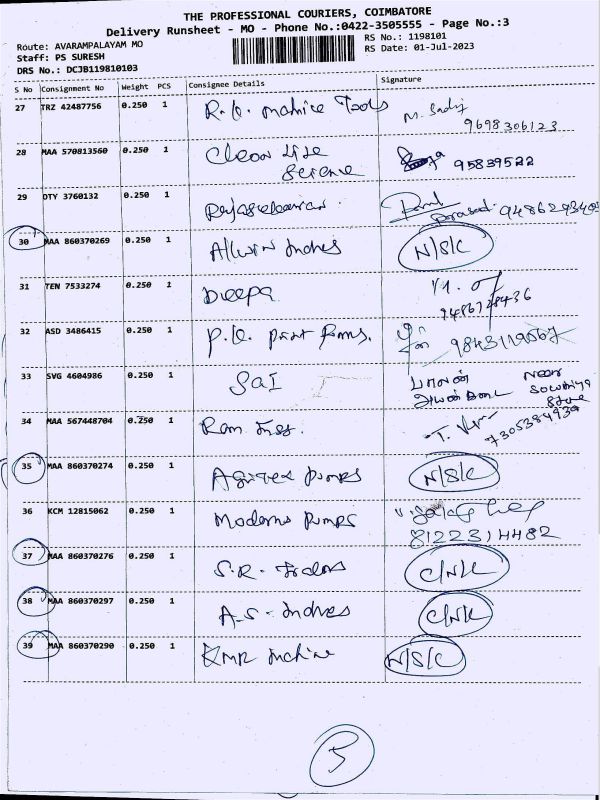 THE PROFESSIONAL COURIERS, COIMBATORE
Delivery Runsheet - MO - Phone No.:0422-3505555 - Page No.:3
Route: AVARAMPALAYAM MO
RS No.: 1198101
Staff: PS SURESH
RS Date: 01-Jul-2023
DRS No.: DCJB119810103
S No Consignment No Weight PCS Consignee Details Signature
27 TRZ 42487756 0.250 1 R.K. Machine Tools
9698306123
28 MAA 570813560 0.250 1 Clean Line Science 95839522
29 DTY 3760132 0.250 1
30 MAA 860370269 0.250 1 Allwin Indres N/S/C
31 TEN 7533274 0.250 1 Deepa
9486728436
32 ASD 3486415 0.250 1 9843119067
33 SVG 4604986 0.250 1 SAI
Near Sowmiya Store
34 MAA 567448704 0.250 1 Ram
7305384930
35 MAA 860370274 0.250 1 Pumps N/S/C
36 KCM 12815062 0.250 1 Moderns Pumps
8122314482
37 MAA 860370276 0.250 1 S.R. C/N/C
38 MAA 860370297 0.250 1 A.S. Indres C/N/C
39 MAA 860370290 0.250 1 KMR N/S/C
5